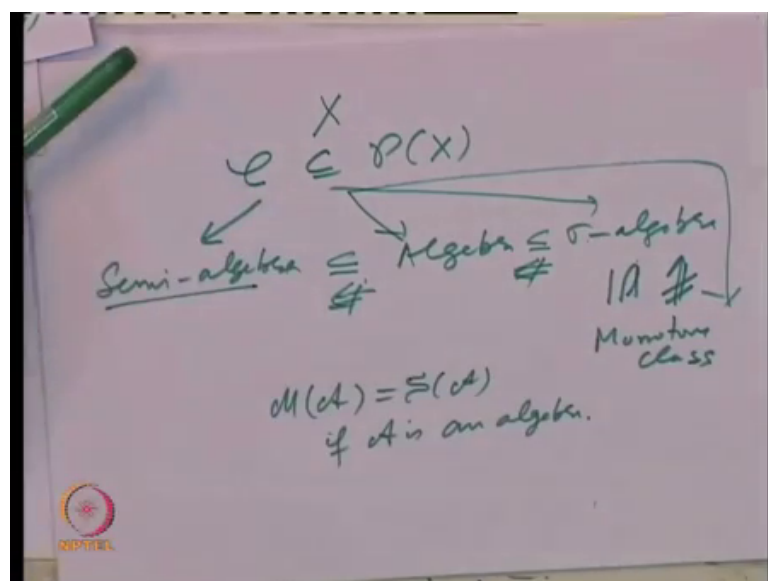 X
𝒞 ⊆ P(X)
Semi-algebra ⊆ Algebra ⊆ σ-algebra
Monotone
class
M(A) = S(A)
if A is an algebra.
NPTEL